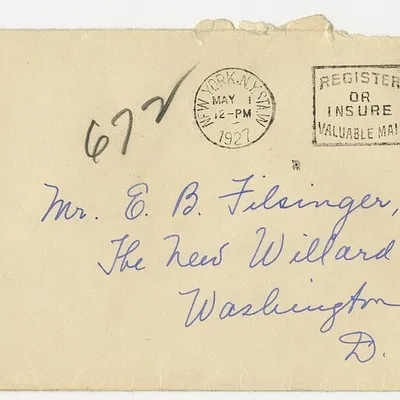 NEW YORK, N.Y. STA. W
MAY 1
12-PM
1927
REGISTER
OR
INSURE
VALUABLE MAI
672
Mr. E. B. Filsinger,
The New Willard
Washington
D.